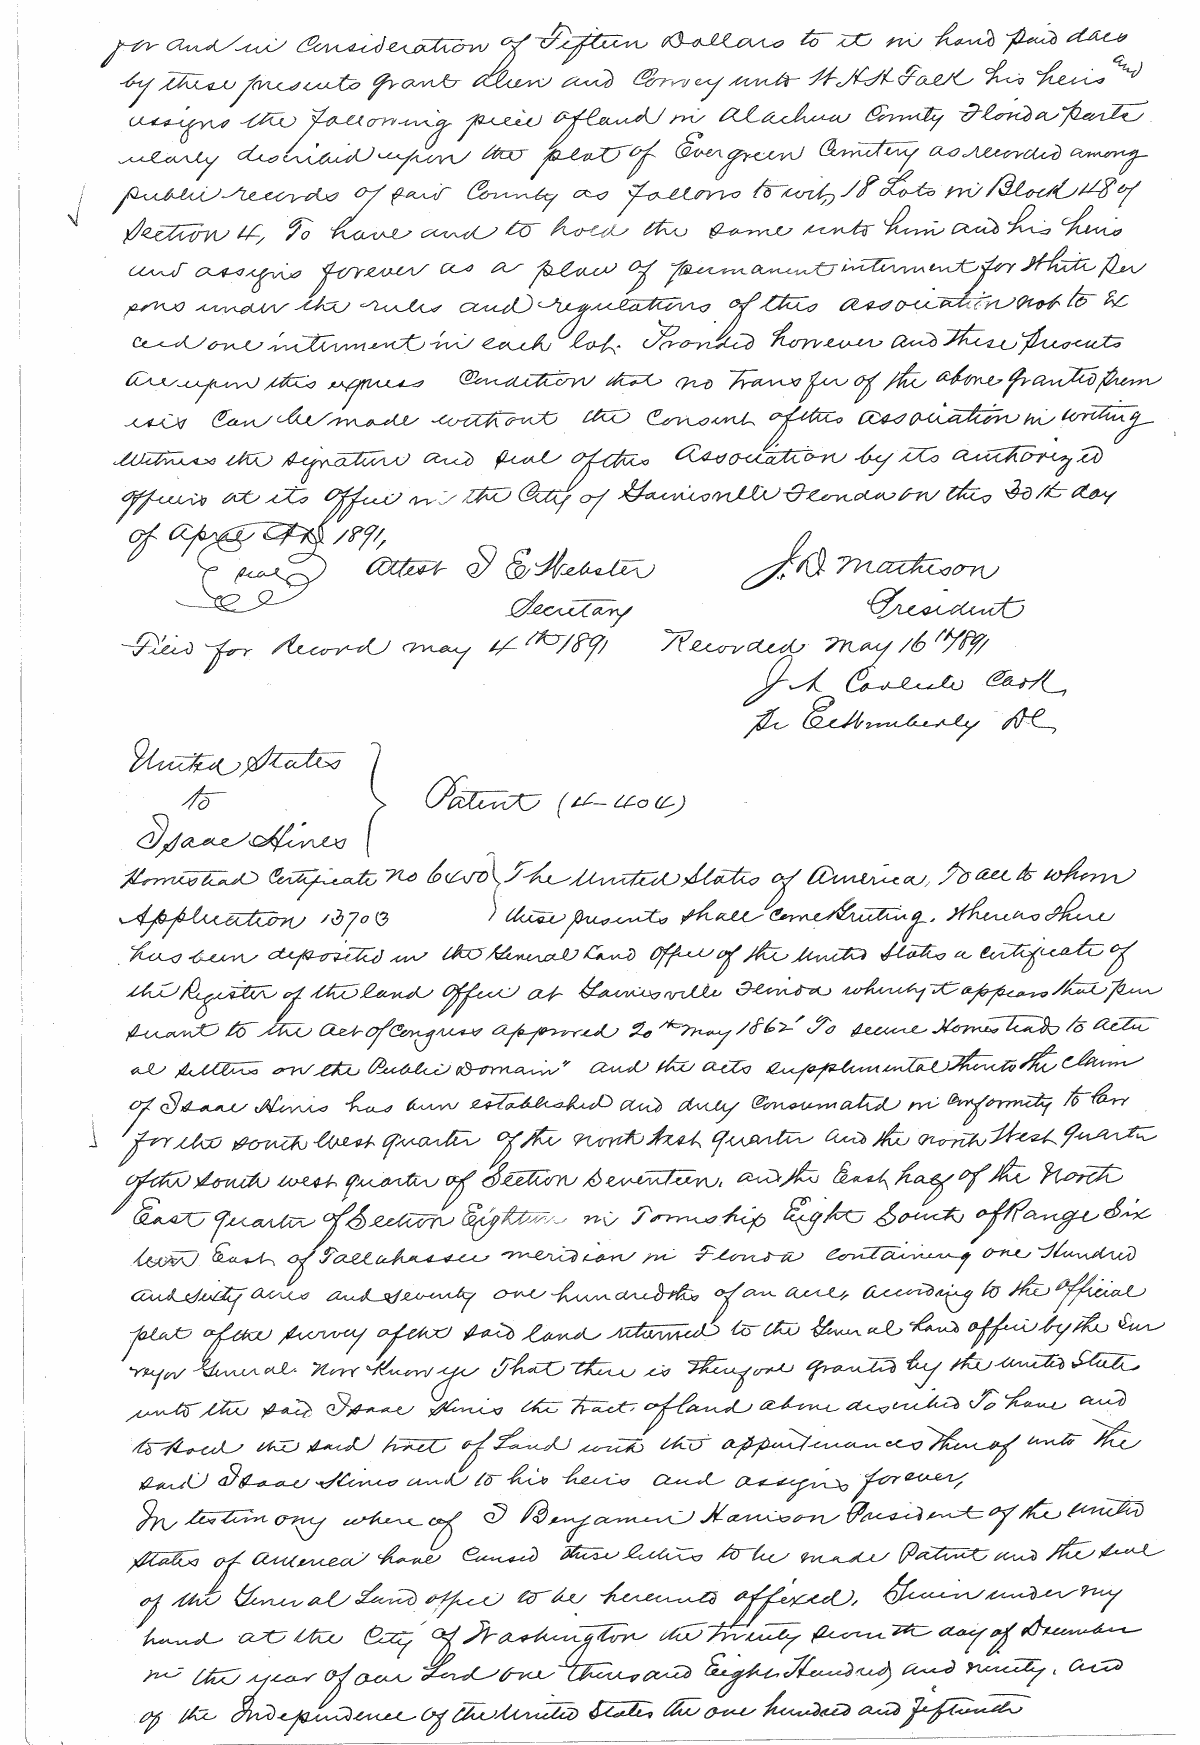 for and in Consideration of Fifteen Dollars to it in hand paid does
by these presents grant alien and Convey unto W H H Falk his heirs and
assigns the following piece of land in Alachua County Florida partic
ularly described upon the plat of Evergreen Cemetery as recorded among
public records of said County as follows to wit, 18 Lots in Block 48 of
Section 4, To have and to hold the same unto him and his heirs
and assigns forever as a place of permanent interment for White Per
sons under the rules and regulations of this association not to Ex
ceed one interment in each lot. Provided however and these presents
are upon this express Condition that no transfer of the above granted prem
ises Can be made without the Consent of this association in writing
Witness the signature and seal of this Association by its authorized
officers at its Office in the City of Gainesville Florida on this 30th day
of April A D 1891,
seal Attest I E Webster J. D. Matheson
Secretary President
Filed for Record may 4th 1891 Recorded May 16th 1891
J A Carlisle Clerk
Pr DC
United States
to
Isaac Hines
Patent (4-404)
Homestead Certificate No 6450 The United States of America, To all to whom
Application 13703 these presents shall Come Greeting. Whereas there
has been deposited in the General Land Office of the United States a Certificate of
the Register of the land Office at Gainesville Florida whereby it appears that pur
suant to the Act of Congress approved 20th May 1862 "To secure Homesteads to actu
al settlers on the Public Domain" and the acts supplimental thereto the claim
of Isaac Hines has been established and duly Consumated in Conformity to law
for the south West quarter of the north West quarter and the north West quarter
of the south west quarter of Section Seventeen, and the East half of the North
East quarter of Section Eighteen in Township Eight South of Range Six
teen East of Tallahassee meridian in Florida Containing one Hundred
and sixty acres and seventy one hundredths of an acre, according to the official
plat of the survey of the said land returned to the General land office by the Sur
veyor General. Now Know ye That there is therefore granted by the United States
unto the said Isaac Hines the tract of land above described To have and
to hold the said tract of Land with the appurtenances thereof unto the
said Isaac Hines and to his heirs and assigns forever,
In testimony where of I Benjamin Harrison President of the United
States of America have Caused these letters to be made Patent and the seal
of the General Land office to be hereunto affixed, Given under my
hand at the City of Washington the twenty seventh day of December
in the year of our Lord one thousand Eight Hundred and ninety, and
of the Independence of the United States the one hundred and fifteenth